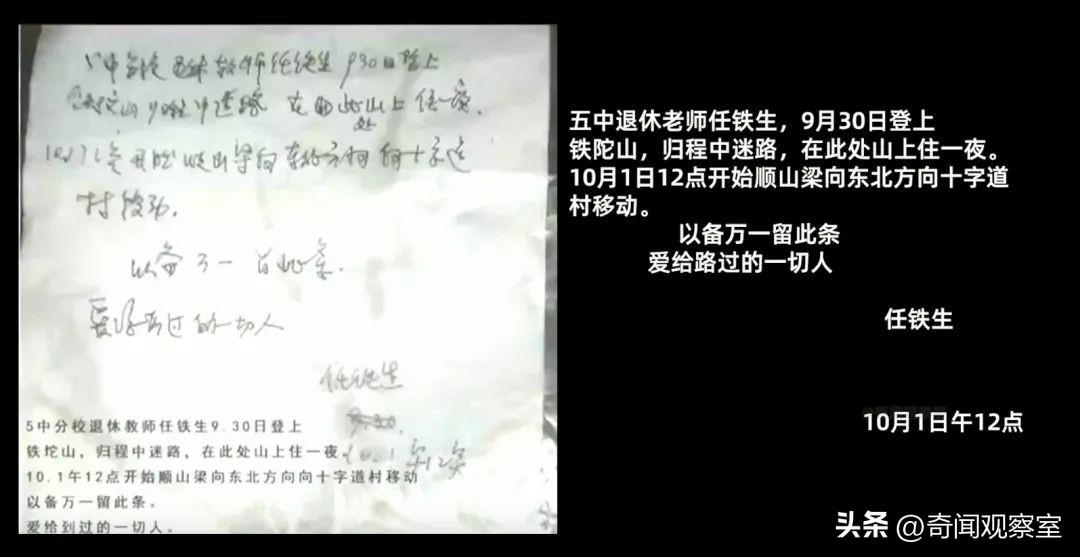 5中分校退休教师任铁生 930日登上
铁坨山归程中迷路 在此处山上住一夜.
开始顺山梁向东北方向向十字道
村移动.
以备万一留此条.
爱给到过的一切人
任铁生
10.1午12点
5中分校退休教师任铁生9.30日登上
铁坨山，归程中迷路，在此处山上住一夜
10.1午12点开始顺山梁向东北方向向十字道村移动
以备万一留此条。
爱给到过的一切人。
五中退休老师任铁生，9月30日登上
铁陀山，归程中迷路，在此处山上住一夜。
10月1日12点开始顺山梁向东北方向十字道
村移动。
以备万一留此条
爱给路过的一切人
任铁生
10月1日午12点
头条 @奇闻观察室